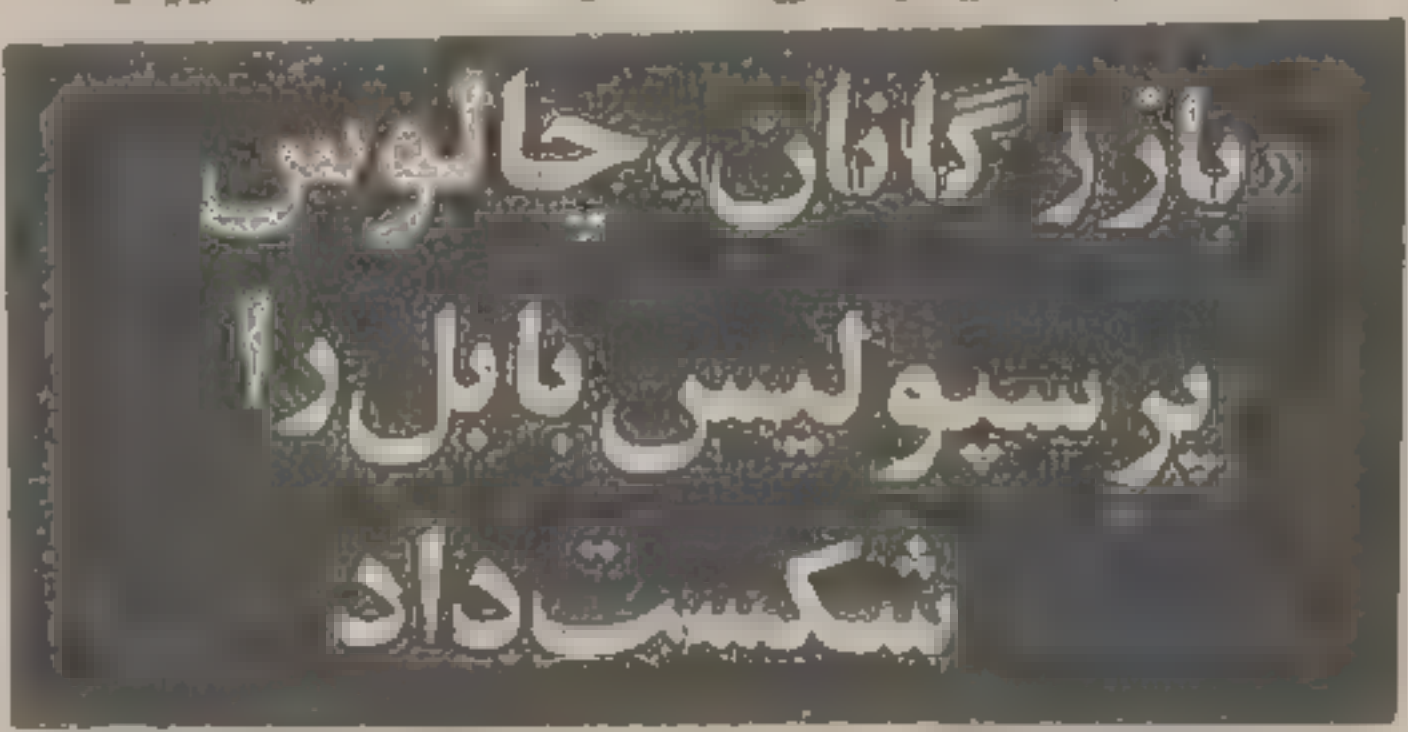 «بازرگانان» چالوس
پرسپولیس بابل را
شکست داد